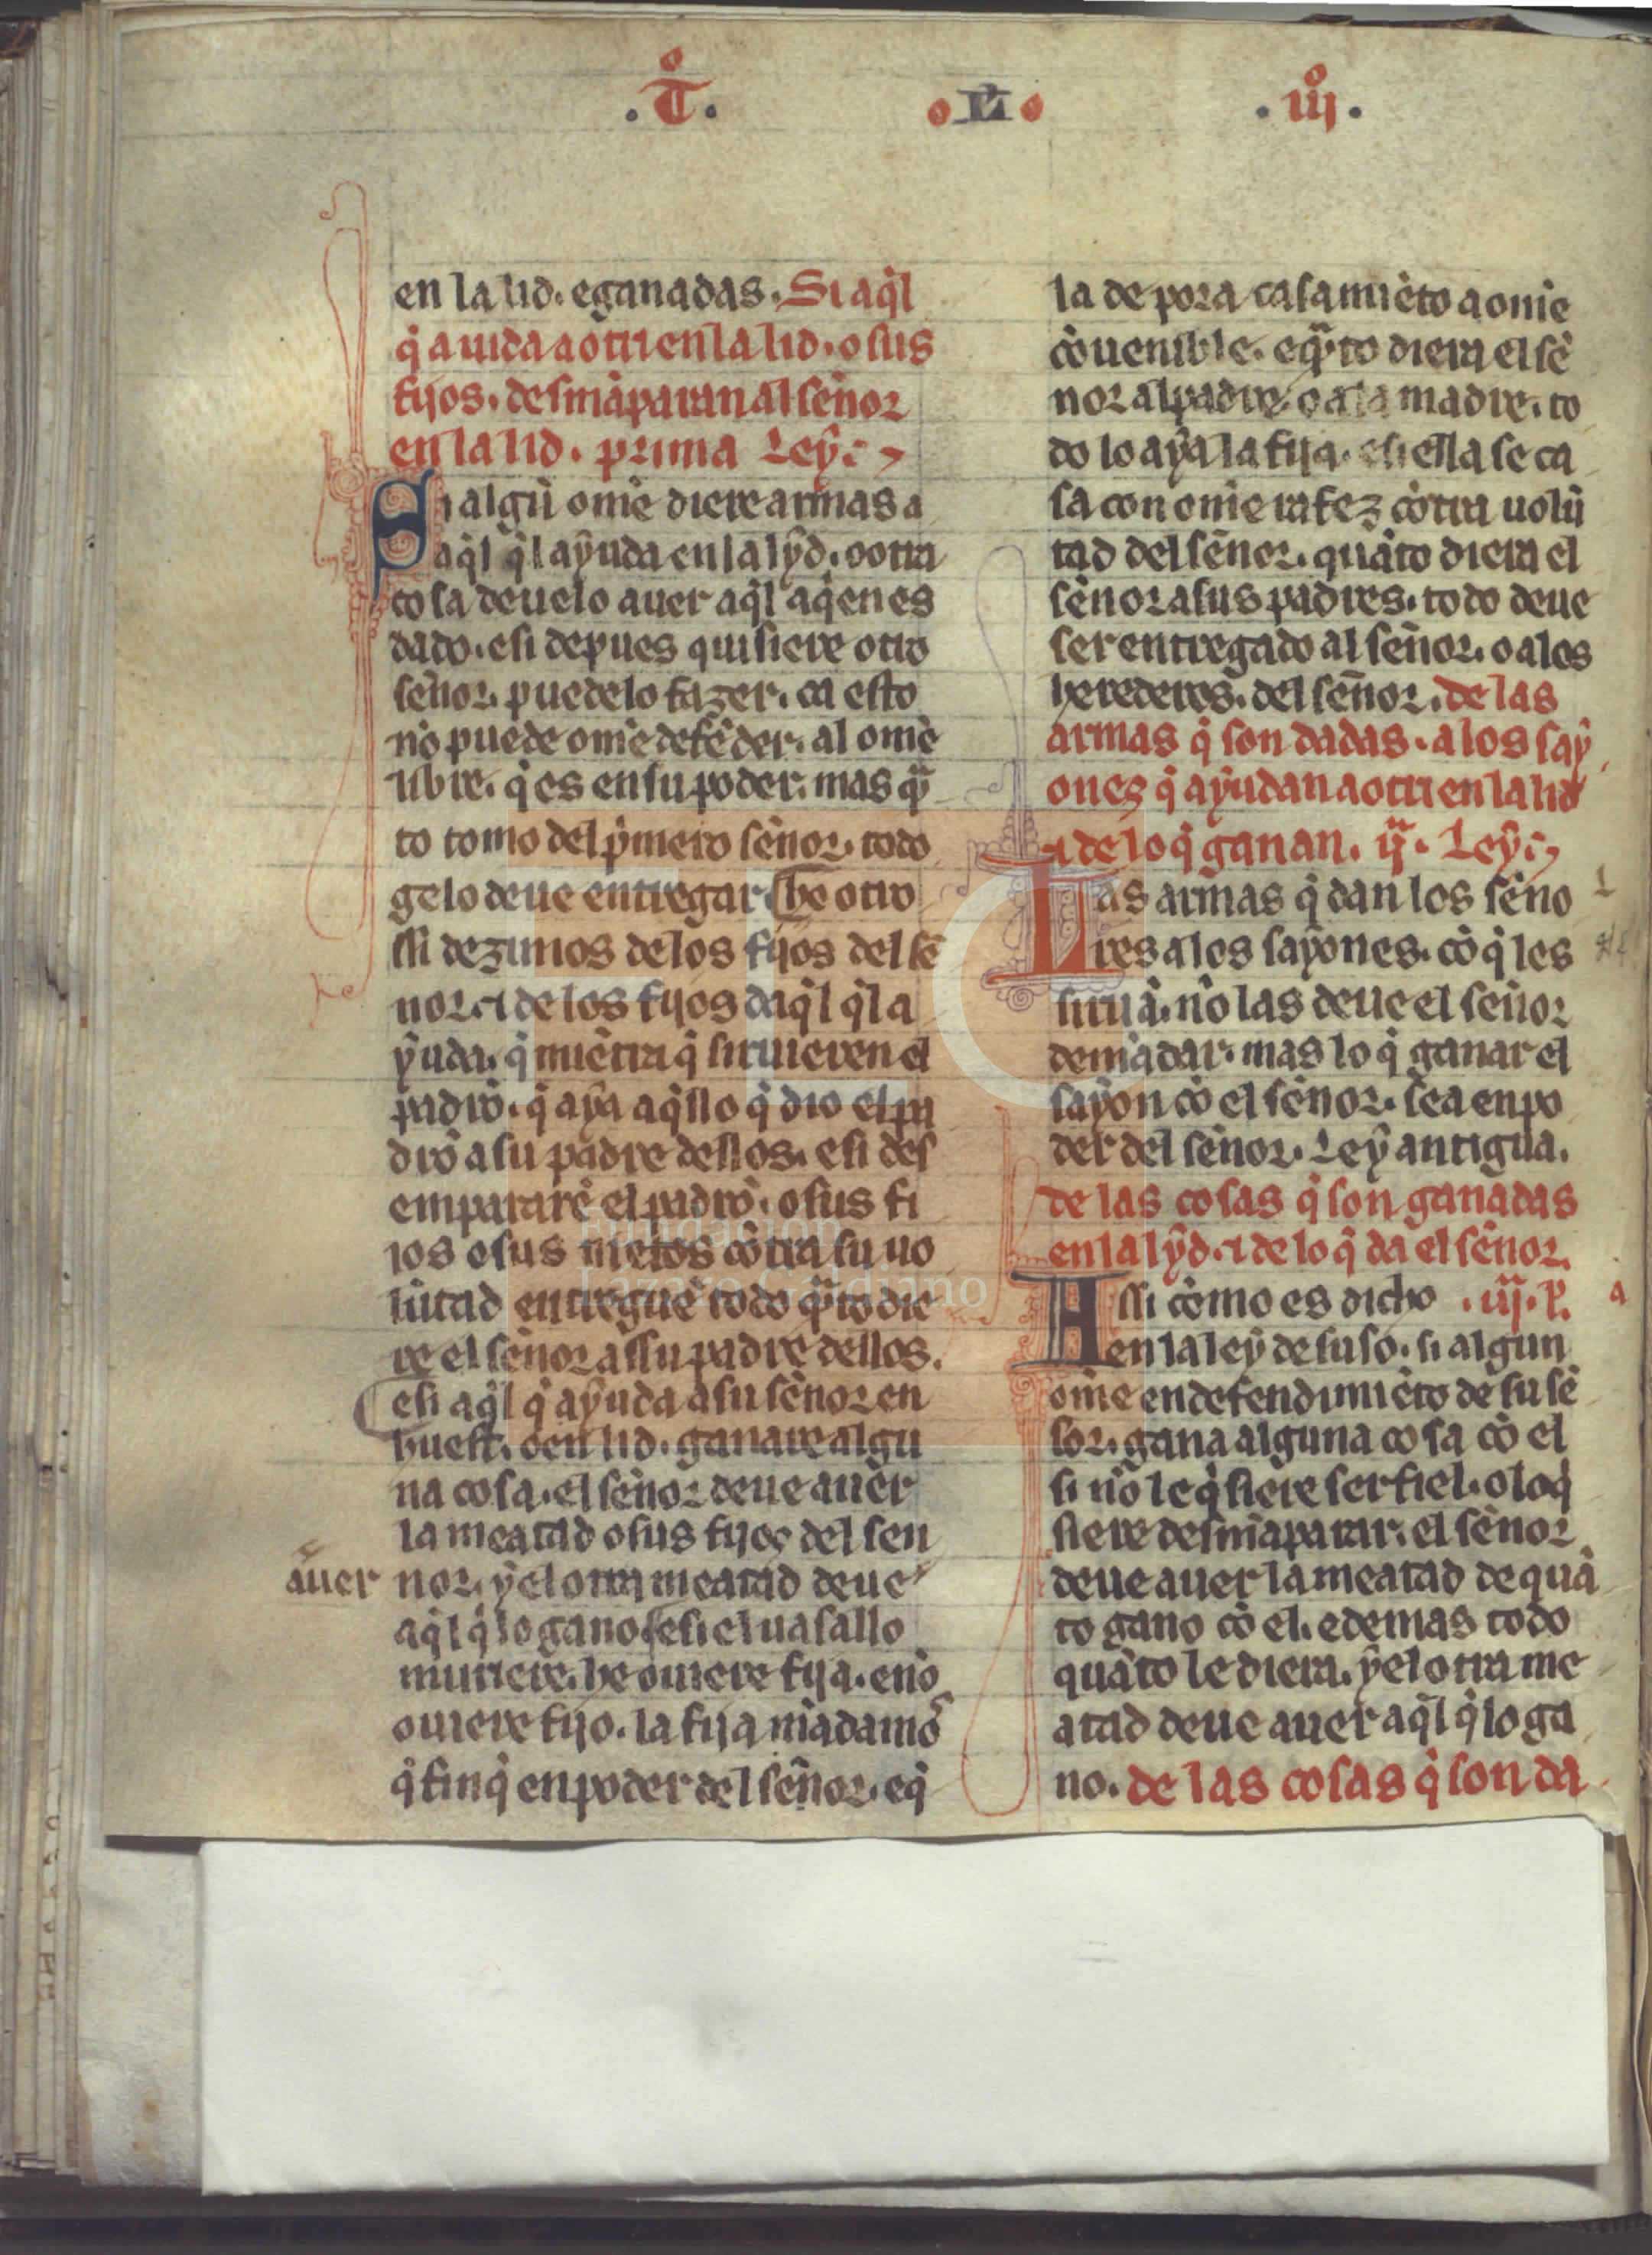 .T̊. .L̊. .iiȷ̊.
en la lid. e ganadas. Si aq̃l
q̃ aiuda a otri en la lid. o sus
fijos. desmãparan al señor
en la lid. prima Ley.
Si algũ omẽ diere armas a
aq̃l q̃l aẏuda en la lẏd. o otra
cosa deuelo auer aq̃l aq̃en es
dado. e si depues quisiere otro
señor. puedelo fazer. ca esto
nõ puede omẽ defẽder. al omẽ
libre. q̃ es en su poder. mas q̃ª
to tomo del p̃mero señor. todo
gelo deue entregar he otro
ssi dezimos delos fijos del sẽ
nor. ⁊ de los fijos daq̃l q̃l a
ẏuda. q̃ miẽtra q̃ siruieren el
padrõ. q̃ aẏa aq̃llo q̃ dio el pa
drõ a su padre dellos. e si des
empararẽ el padrõ. o sus fi
ios o sus nietos cõtra su uo
lũtad entreguẽ todo q̃ªto die
re el señor assu padre dellos.
e si aq̃l q̃ aẏuda a su señor en
huest. o en lid. ganare algu
na cosa. el señor deue auer
la meatad o sus fijos del sen
auer nor. ẏ el otra meatad deue
aq̃l q̃ lo gano. e si el uasallo
muriere. he ouiere fija. e nõ
ouiere fijo. la fija mãdamõs
q̃ finq̃ en poder del señor. e q̃
la de pora casamiẽto a omẽ
cõuenible. e q̃ªto diera el sẽ
nor al padre. o ala madre. to
do lo aẏa la fija. e si ella se ca
sa con omẽ rafez cõtra uolũ
tad del señor. quãto diera el
señor a sus padres. todo deue
ser entregado al señor. o a los
herederos. del señor. de las
armas q̃ son dadas. a los saẏ
ones q̃ aẏudan a otri en la lid
⁊ de lo q̃ ganan. ij.ª Leẏ.
Las armas q̃ dan los seño
res a los saẏones. cõ q̃ les
siruã. nõ las deue el señor
demãdar. mas lo q̃ ganar el
saẏon cõ el señor. sea en po
der del señor. Leẏ antigua.
de las cosas q̃ son ganadas
en la lẏd. ⁊ de lo q̃ da el señor.
Assi cõmo es dicho .iij.ª L.
en la leẏ de suso. si algun
omẽ en defendimiẽto de su sẽ
ñor. gana alguna cosa cõ el
si nõ le q̃siere ser fiel. o lo q̃
siere desmãparar. el señor
deue auer la meatad de quã
to gano cõ el. e demas todo
quãto le diera. ẏ el otra me
atad deue auer aq̃l q̃ lo ga
no. de las cosas q̃ son da
Fundación
Lázaro Galdiano